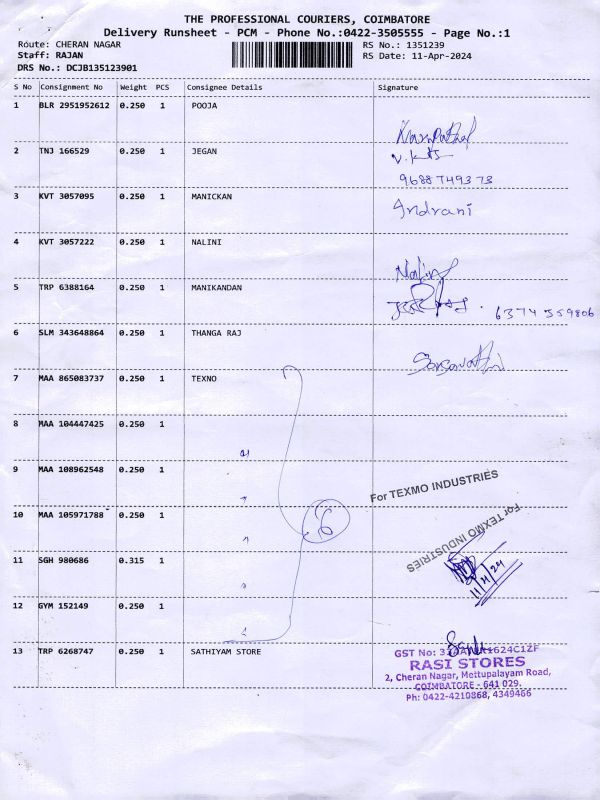 THE PROFESSIONAL COURIERS, COIMBATORE
Delivery Runsheet - PCM - Phone No.:0422-3505555 - Page No.:1
Route: CHERAN NAGAR RS No.: 1351239
Staff: RAJAN RS Date: 11-Apr-2024
DRS No.: DCJB135123901
S No Consignment No Weight PCS Consignee Details Signature
1 BLR 2951952612 0.250 1 POOJA
2 TNJ 166529 0.250 1 JEGAN
9688749373
3 KVT 3057095 0.250 1 MANICKAN Indrani
4 KVT 3057222 0.250 1 NALINI
Nalini
5 TRP 6388164 0.250 1 MANIKANDAN
6374559806
6 SLM 343648864 0.250 1 THANGA RAJ
7 MAA 865083737 0.250 1 TEXNO
8 MAA 104447425 0.250 1
9 MAA 108962548 0.250 1
For TEXMO INDUSTRIES
10 MAA 105971788 0.250 1 6
For TEXMO INDUSTRIES
11 SGH 980686 0.315 1
11/4/24
12 GYM 152149 0.250 1
13 TRP 6268747 0.250 1 SATHIYAM STORE
GST No:
RASI STORES
2, Cheran Nagar, Mettupalayam Road,
COIMBATORE - 641 029.
Ph: 0422-4210868, 4349466